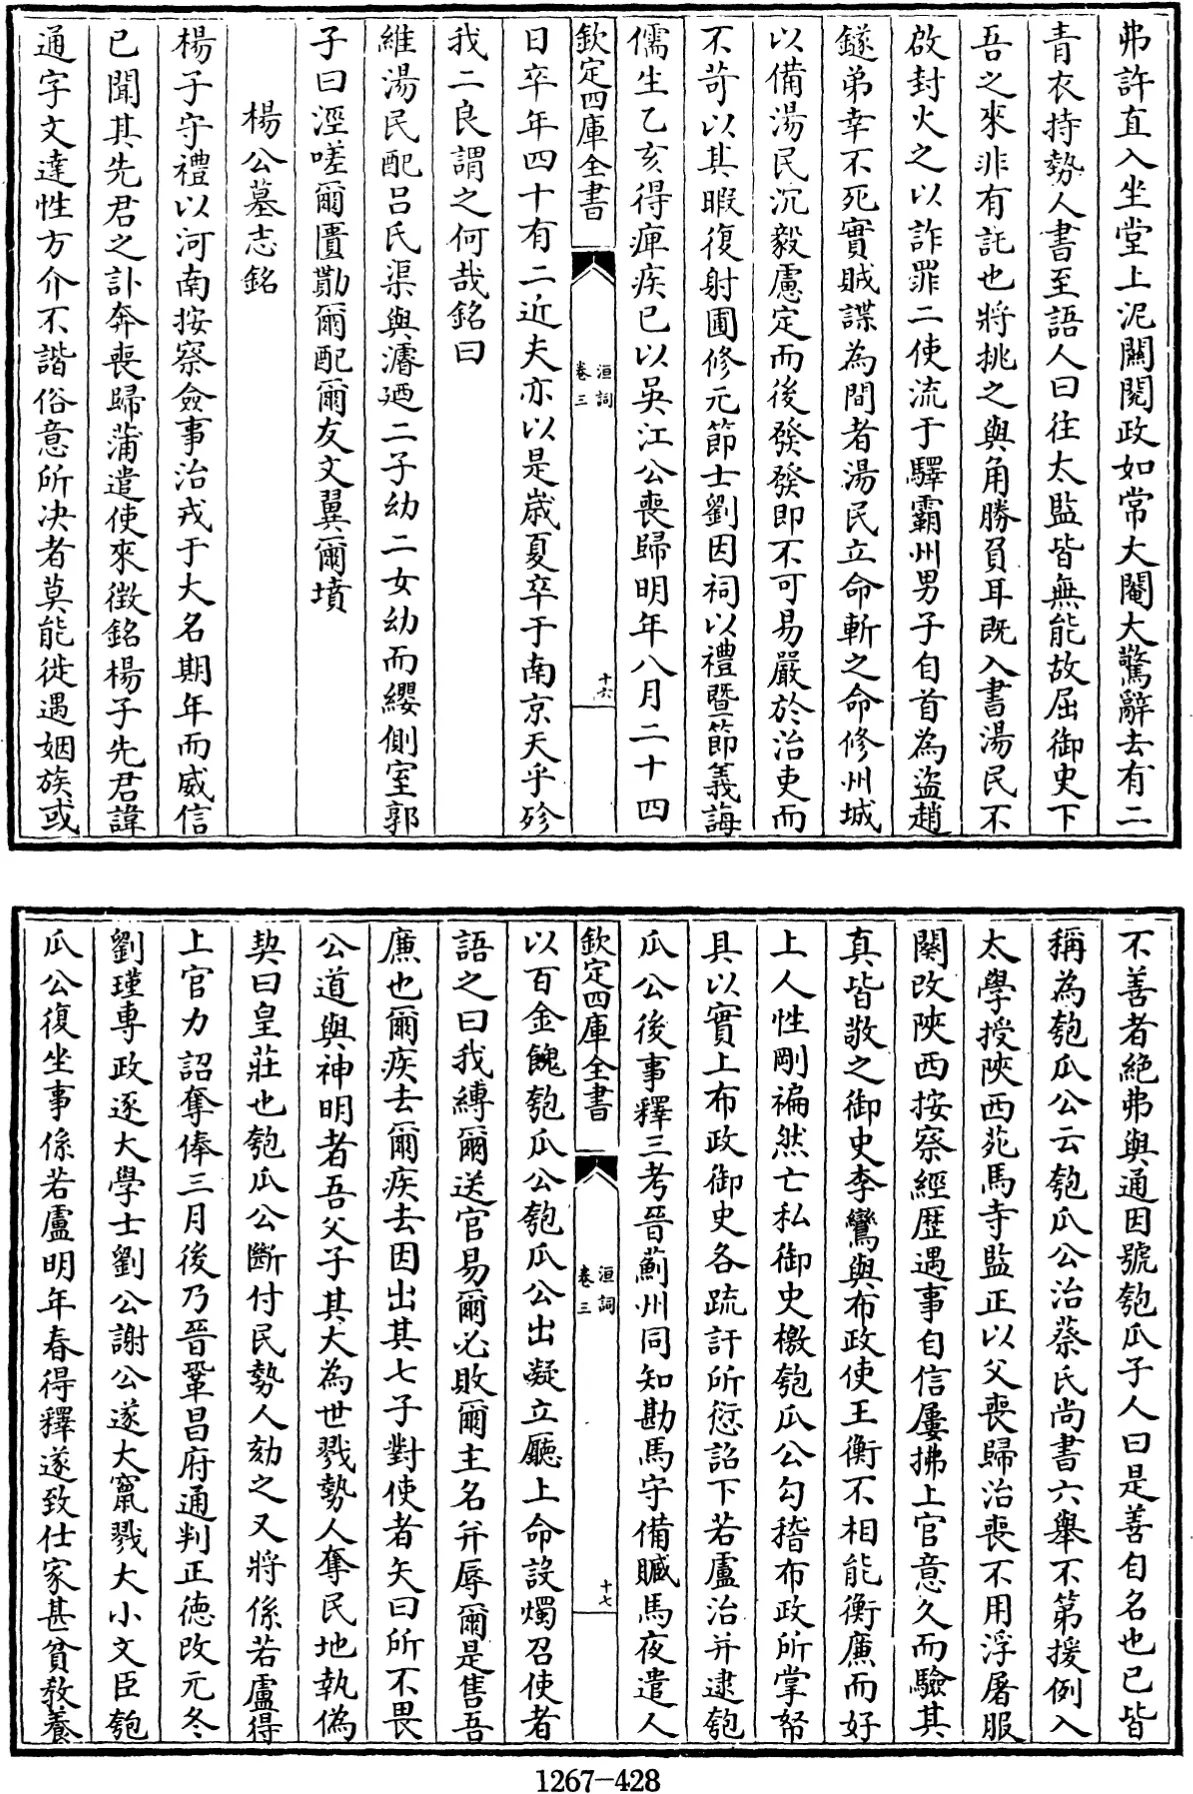 弗許直入坐堂上泥關閱政如常大閹大驚辭去有二
青衣持勢人書至語人曰往太監皆無能故屈御史下
吾之來非有託也將挑之與角勝負耳既入書湯民不
啟封火之以詐罪二使流于驛霸州男子自首為盜趙
鐩弟幸不死實賊諜為間者湯民立命斬之命修州城
以備湯民沉毅慮定而後發發即不可易嚴於治吏而
不苛以其暇復射圃修元節士劉因祠以禮暨節義誨
儒生乙亥得痺疾已以吳江公喪歸明年八月二十四
欽定四庫全書
洹詞
卷三
十六
日卒年四十有二近夫亦以是歲夏卒于南京天乎殄
我二良謂之何哉銘曰
維湯民配呂氏渠與濬廼二子幼二女幼而纓側室郭
子曰涇嗟爾匱勩爾配爾友文翼爾墳
楊公墓志銘
楊子守禮以河南按察僉事治戎于大名期年而威信
已聞其先君之訃奔喪歸蒲遣使來徵銘楊子先君諱
通字文達性方介不諧俗意所決者莫能徙遇姻族或
不善者絕弗與通因號匏瓜子人曰是善自名也已皆
稱為匏瓜公云匏瓜公治蔡氏尚書六舉不第援例入
太學授陝西苑馬寺監正以父喪歸治喪不用浮屠服
闋改陝西按察經歷遇事自信屢拂上官意久而驗其
真皆敬之御史李鸞與布政使王衡不相能衡廉而好
上人性剛褊然亡私御史檄匏瓜公勾稽布政所掌帑
具以實上布政御史各疏訐所愆詔下若盧治并逮匏
瓜公後事釋三考晉薊州同知勘馬守備贓馬夜遣人
欽定四庫全書
洹詞
卷三
十七
以百金餽匏瓜公匏瓜公出凝立廳上命設燭召使者
語之曰我縛爾送官易爾必敗爾主名并辱爾是售吾
廉也爾疾去爾疾去因出其七子對使者矢曰所不畏
公道與神明者吾父子其大為世戮勢人奪民地執偽
契曰皇莊也匏瓜公斷付民勢人劾之又將係若盧得
上官力詔奪俸三月後乃晉鞏昌府通判正德改元冬
劉瑾專政逐大學士劉公謝公遂大竄戮大小文臣匏
瓜公復坐事係若盧明年春得釋遂致仕家甚貧教養
1267-428